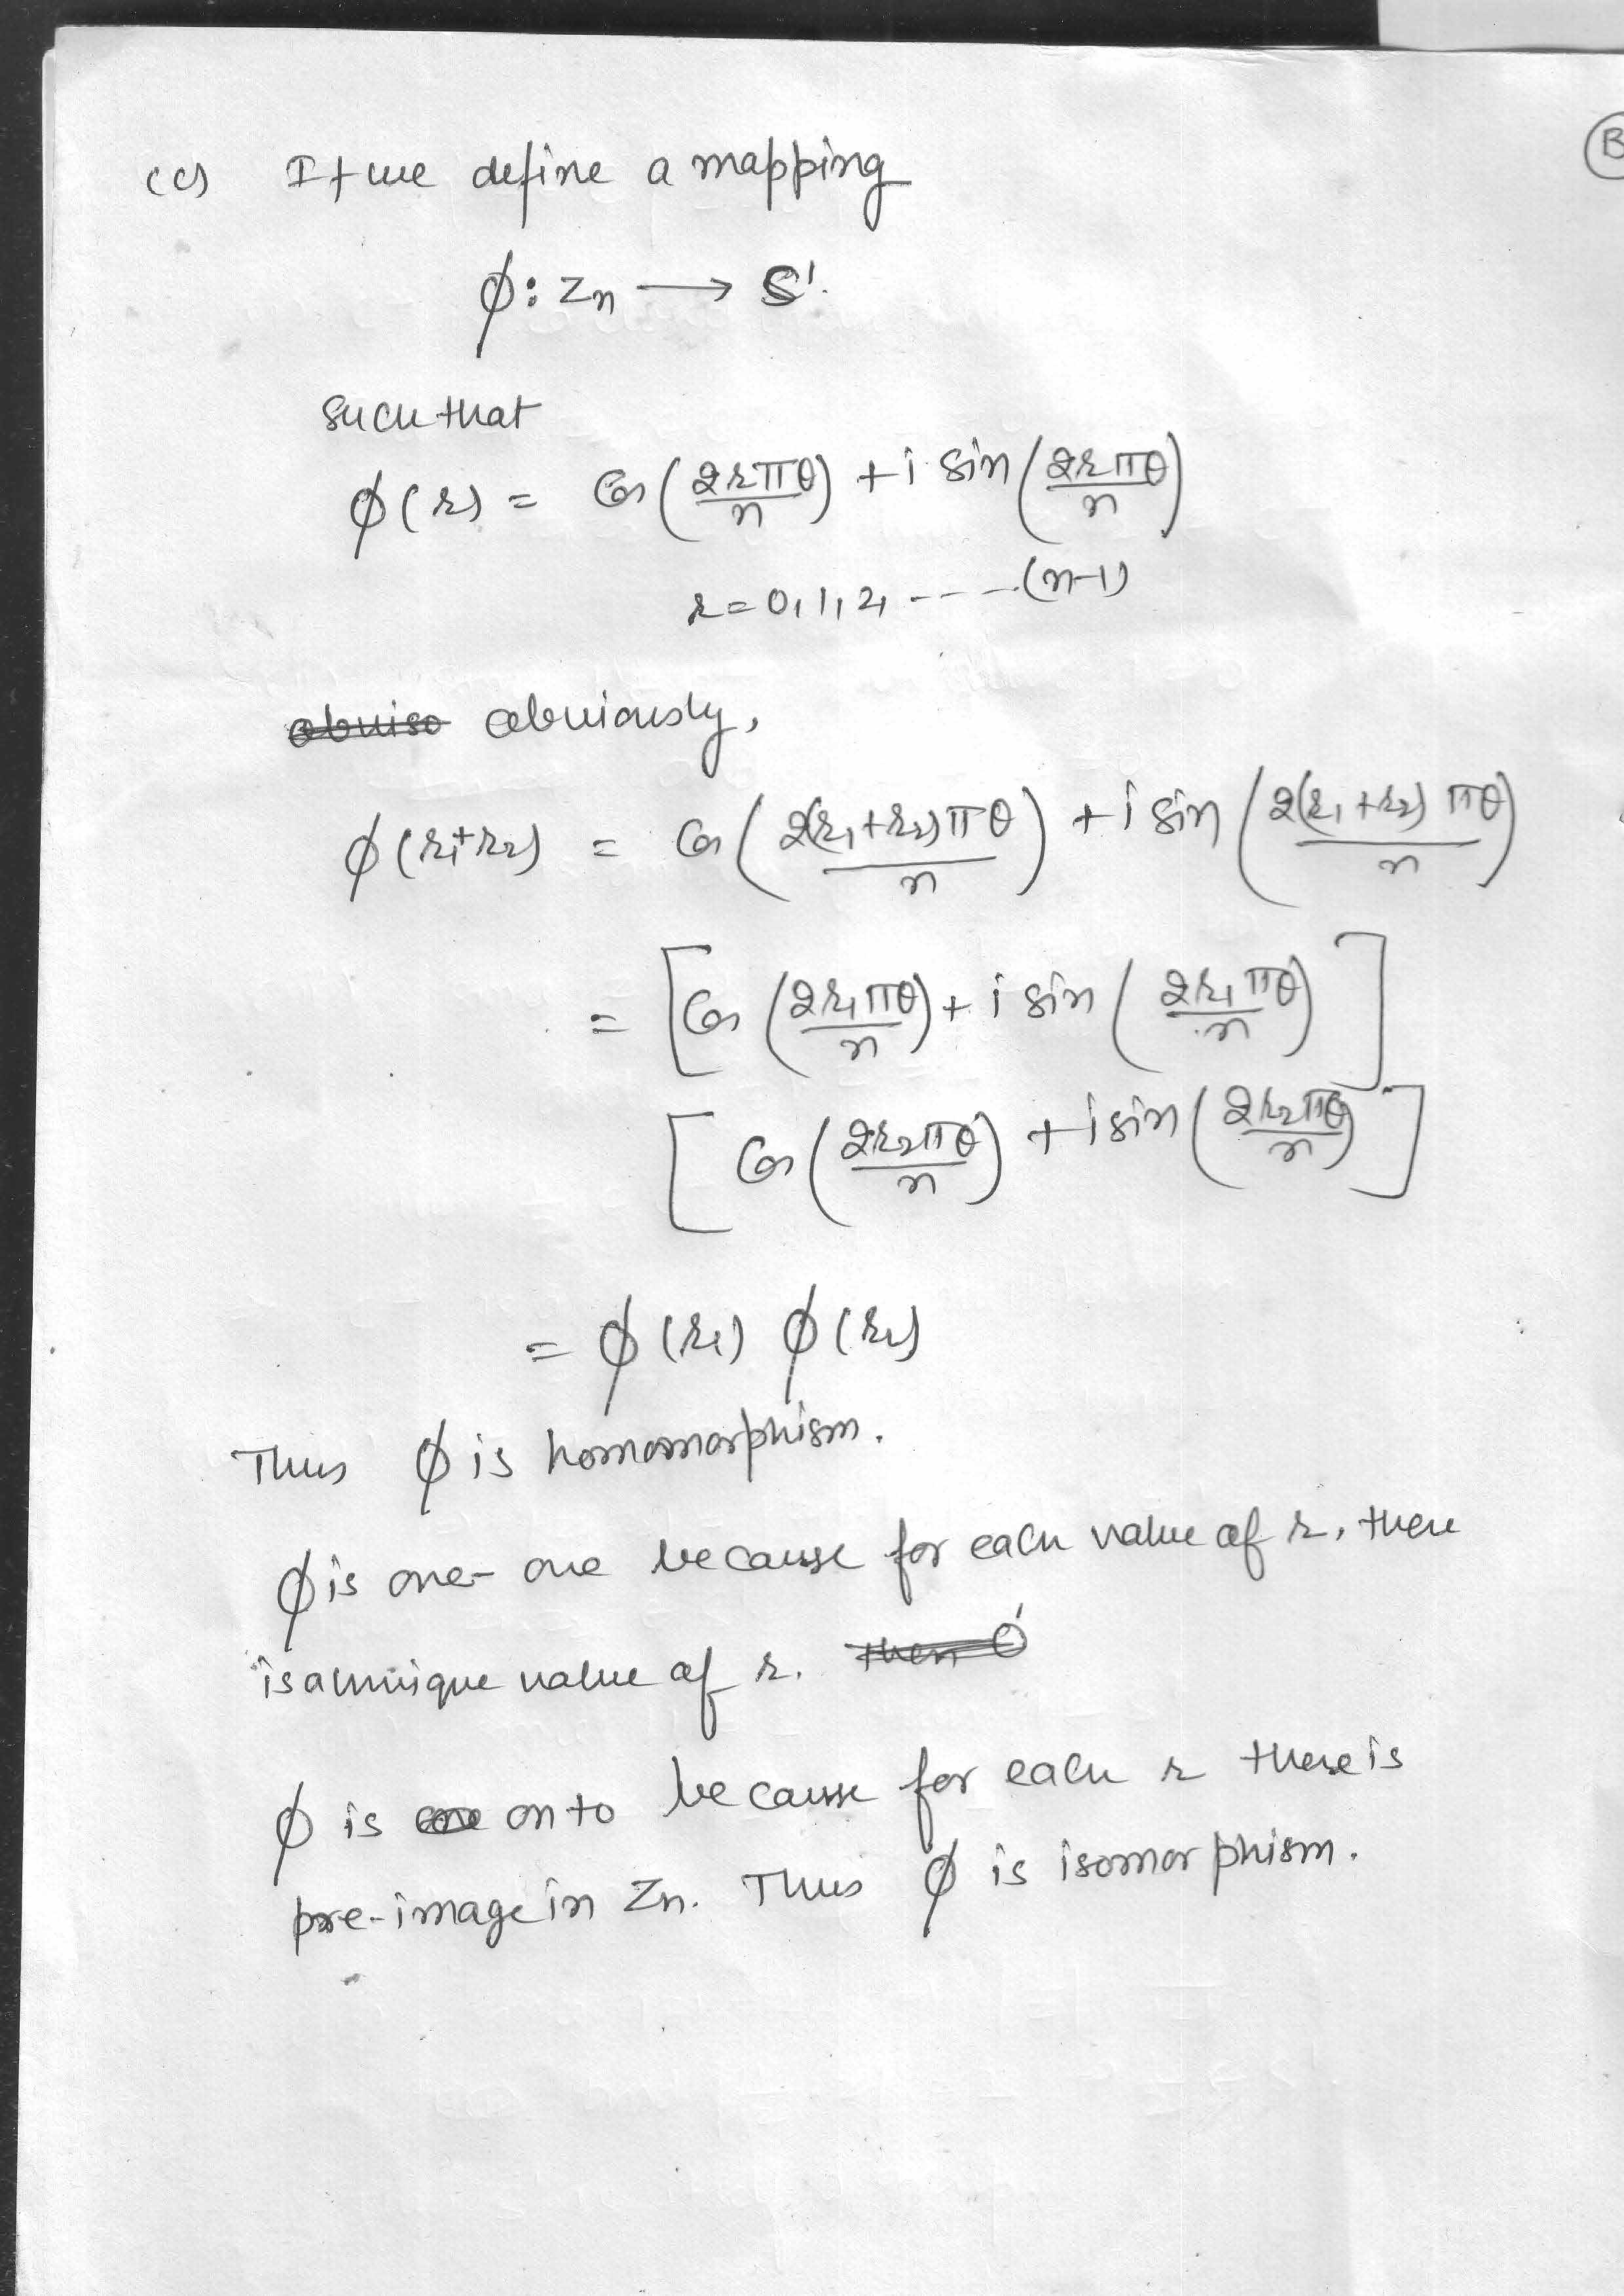 B
(c) If we define a mapping
φ: Zn → S'.
such that
φ(r) = Cos(2rπθ/n) + i sin(2rπθ/n)
r = 0, 1, 2, ---- (n-1)
obviso obviously,
φ(r1+r2) = Cos(2(r1+r2)πθ/n) + i sin(2(r1+r2)πθ/n)
= [Cos(2r1πθ/n) + i sin(2r1πθ/n)]
[Cos(2r2πθ/n) + i sin(2r2πθ/n)]
= φ(r1) φ(r2)
Thus φ is homomorphism.
φ is one-one because for each value of r, there
is a unique value of r. then
φ is one onto because for each r there is
pre-image in Zn. Thus φ is isomorphism.